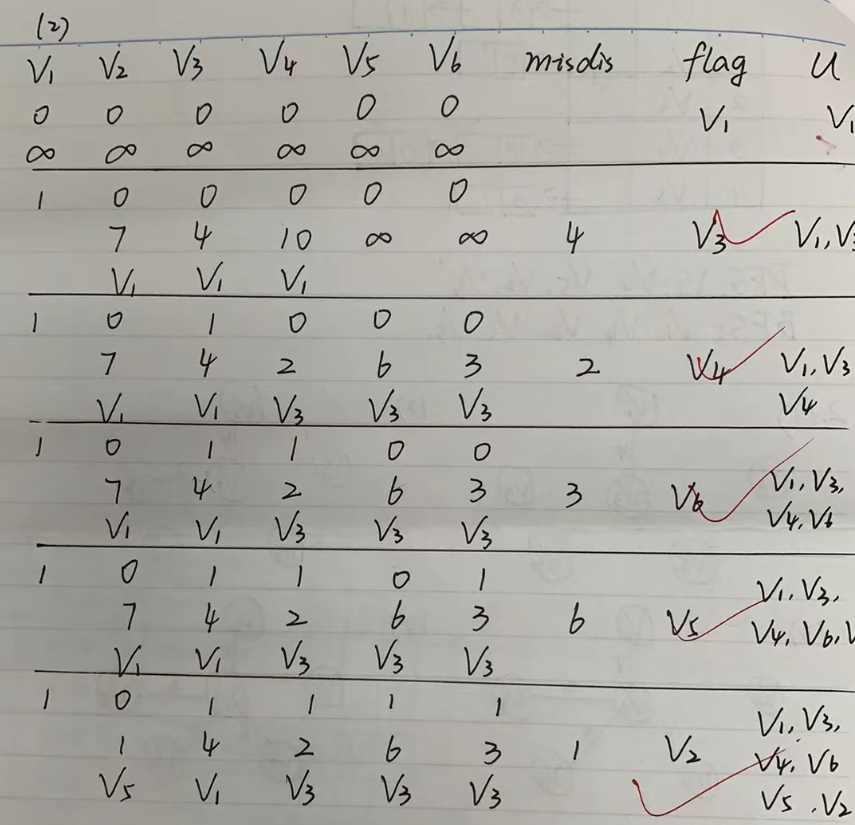 (2)
V1 V2 V3 V4 V5 V6 misdis flag U
0 0 0 0 0 0 V1 V1
∞ ∞ ∞ ∞ ∞ ∞
1 0 0 0 0 0
7 4 10 ∞ ∞ 4 V3 V1,V3
V1 V1 V1
1 0 1 0 0 0
7 4 2 6 3 2 V4 V1,V3
V1 V1 V3 V3 V3 V4
1 0 1 1 0 0
7 4 2 6 3 3 V6 V1,V3,
V1 V1 V3 V3 V3 V4,V6
1 0 1 1 0 1 V1,V3,
7 4 2 6 3 6 V5 V4,V6,V
V1 V1 V3 V3 V3
1 0 1 1 1 1 V1,V3,
1 4 2 6 3 1 V2 V4,V6
V5 V1 V3 V3 V3 V5,V2